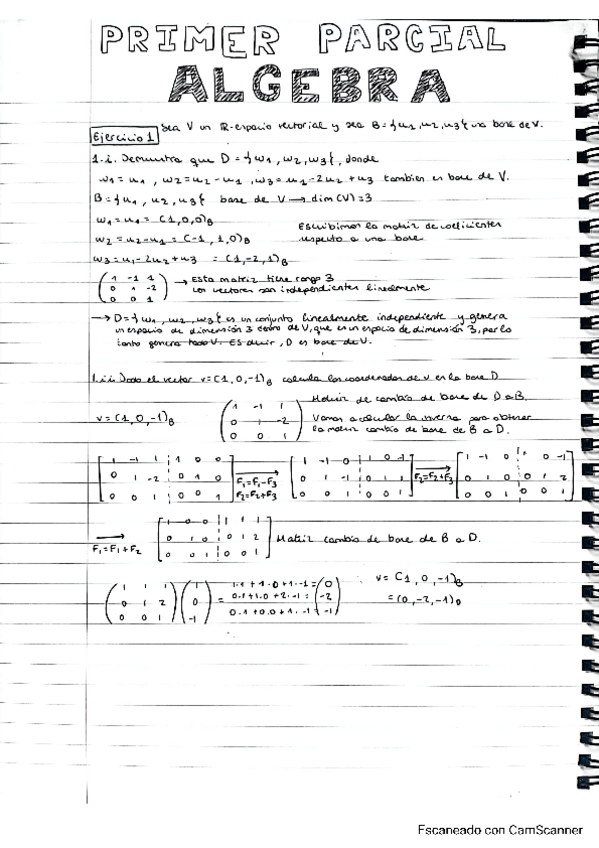 PRIMER PARCIAL
ALGEBRA
Ejercicio 1 Sea V un R-espacio vectorial y sea B = {u1, u2, u3} una base de V.
1.i. Demuestra que D = {w1, w2, w3}, donde
w1 = u1, w2 = u2 - u1, w3 = u1 - 2u2 + u3 también es base de V.
B = {u1, u2, u3} base de V → dim (V) = 3
w1 = u1 = (1,0,0)B
Escribimos la matriz de coeficientes
w2 = u2 - u1 = (-1, 1,0)B
respecto a una base.
w3 = u1 - 2u2 + u3 = (1,-2,1)B
1 -1 1
0 1 -2
0 0 1
→ Esta matriz tiene rango 3
Los vectores son independientes linealmente
→ D = {w1, w2, w3} es un conjunto linealmente independiente y genera
un espacio de dimensión 3 dentro de V, que es un espacio de dimensión 3, por lo
tanto genera todo V. Es decir, D es base de V.
1.ii Dado el vector v = (1,0,-1)B calcula las coordenadas de v en la base D
Matriz de cambio de base de D a B.
v = (1,0,-1)B
1 -1 1
0 1 -2
0 0 1
Vamos a calcular la inversa para obtener
la matriz cambio de base de B a D.
1 -1 1 1 0 0
0 1 -2 0 1 0
0 0 1 0 0 1
F1=F1-F3
F2=F2+F3
1 -1 0 1 0 -1
0 1 -1 0 1 1
0 0 1 0 0 1
F2=F2+F3
1 -1 0 1 0 -1
0 1 0 0 1 2
0 0 1 0 0 1
F1=F1+F2
1 0 0 1 1 1
0 1 0 0 1 2
0 0 1 0 0 1
Matriz cambio de base de B a D.
1 1 1
0 1 2
0 0 1
1
0
-1
=
1·1 + 1·0 + 1·-1 = 0
0·1 + 1·0 + 2·-1 = -2
0·1 + 0·0 + 1·-1 -1
v = (1,0,-1)B
= (0,-2,-1)D
Escaneado con CamScanner